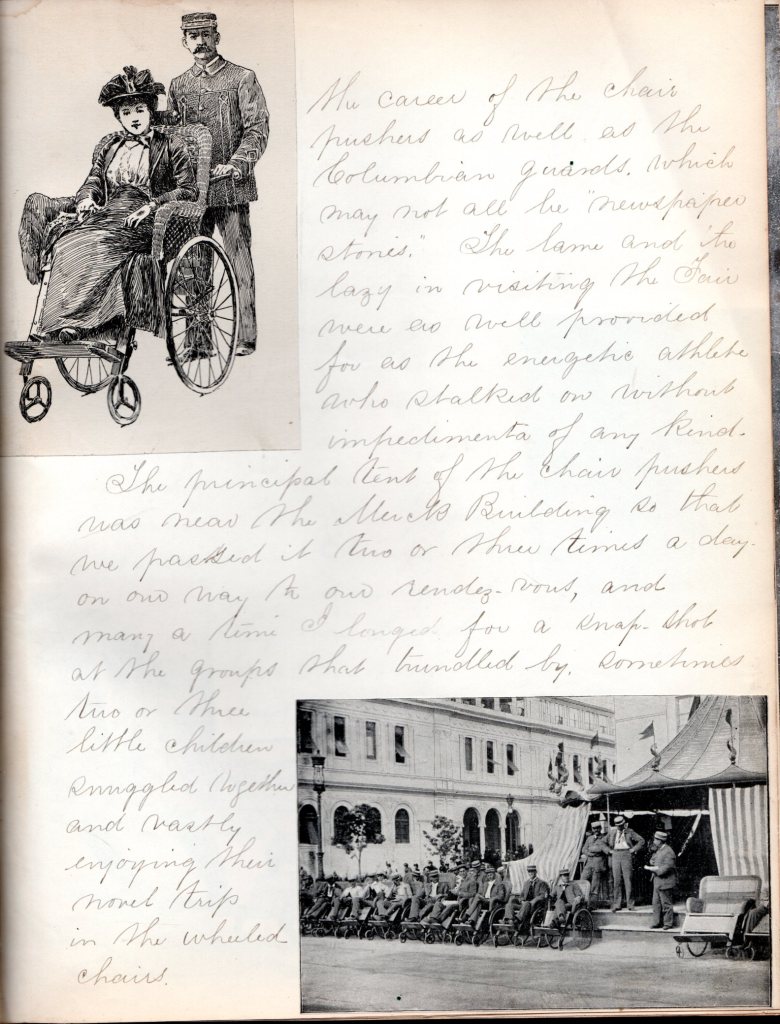 the career of the chair
pushers as well as the
Columbian guards. which
may not all be "newspaper
stories." The lame and the
lazy in visiting the Fair
were as well provided
for as the energetic athlete
who stalked on without
impedimenta of any kind.
The principal tent of the chair pushers
was near the Merck Building so that
we passed it two or three times a day.
on our way to our rendez-vous, and
many a time I longed for a snap-shot
at the groups that trundled by. sometimes
two or three
little children
snuggled together
and vastly
enjoying their
novel trip
in the wheeled
chairs.